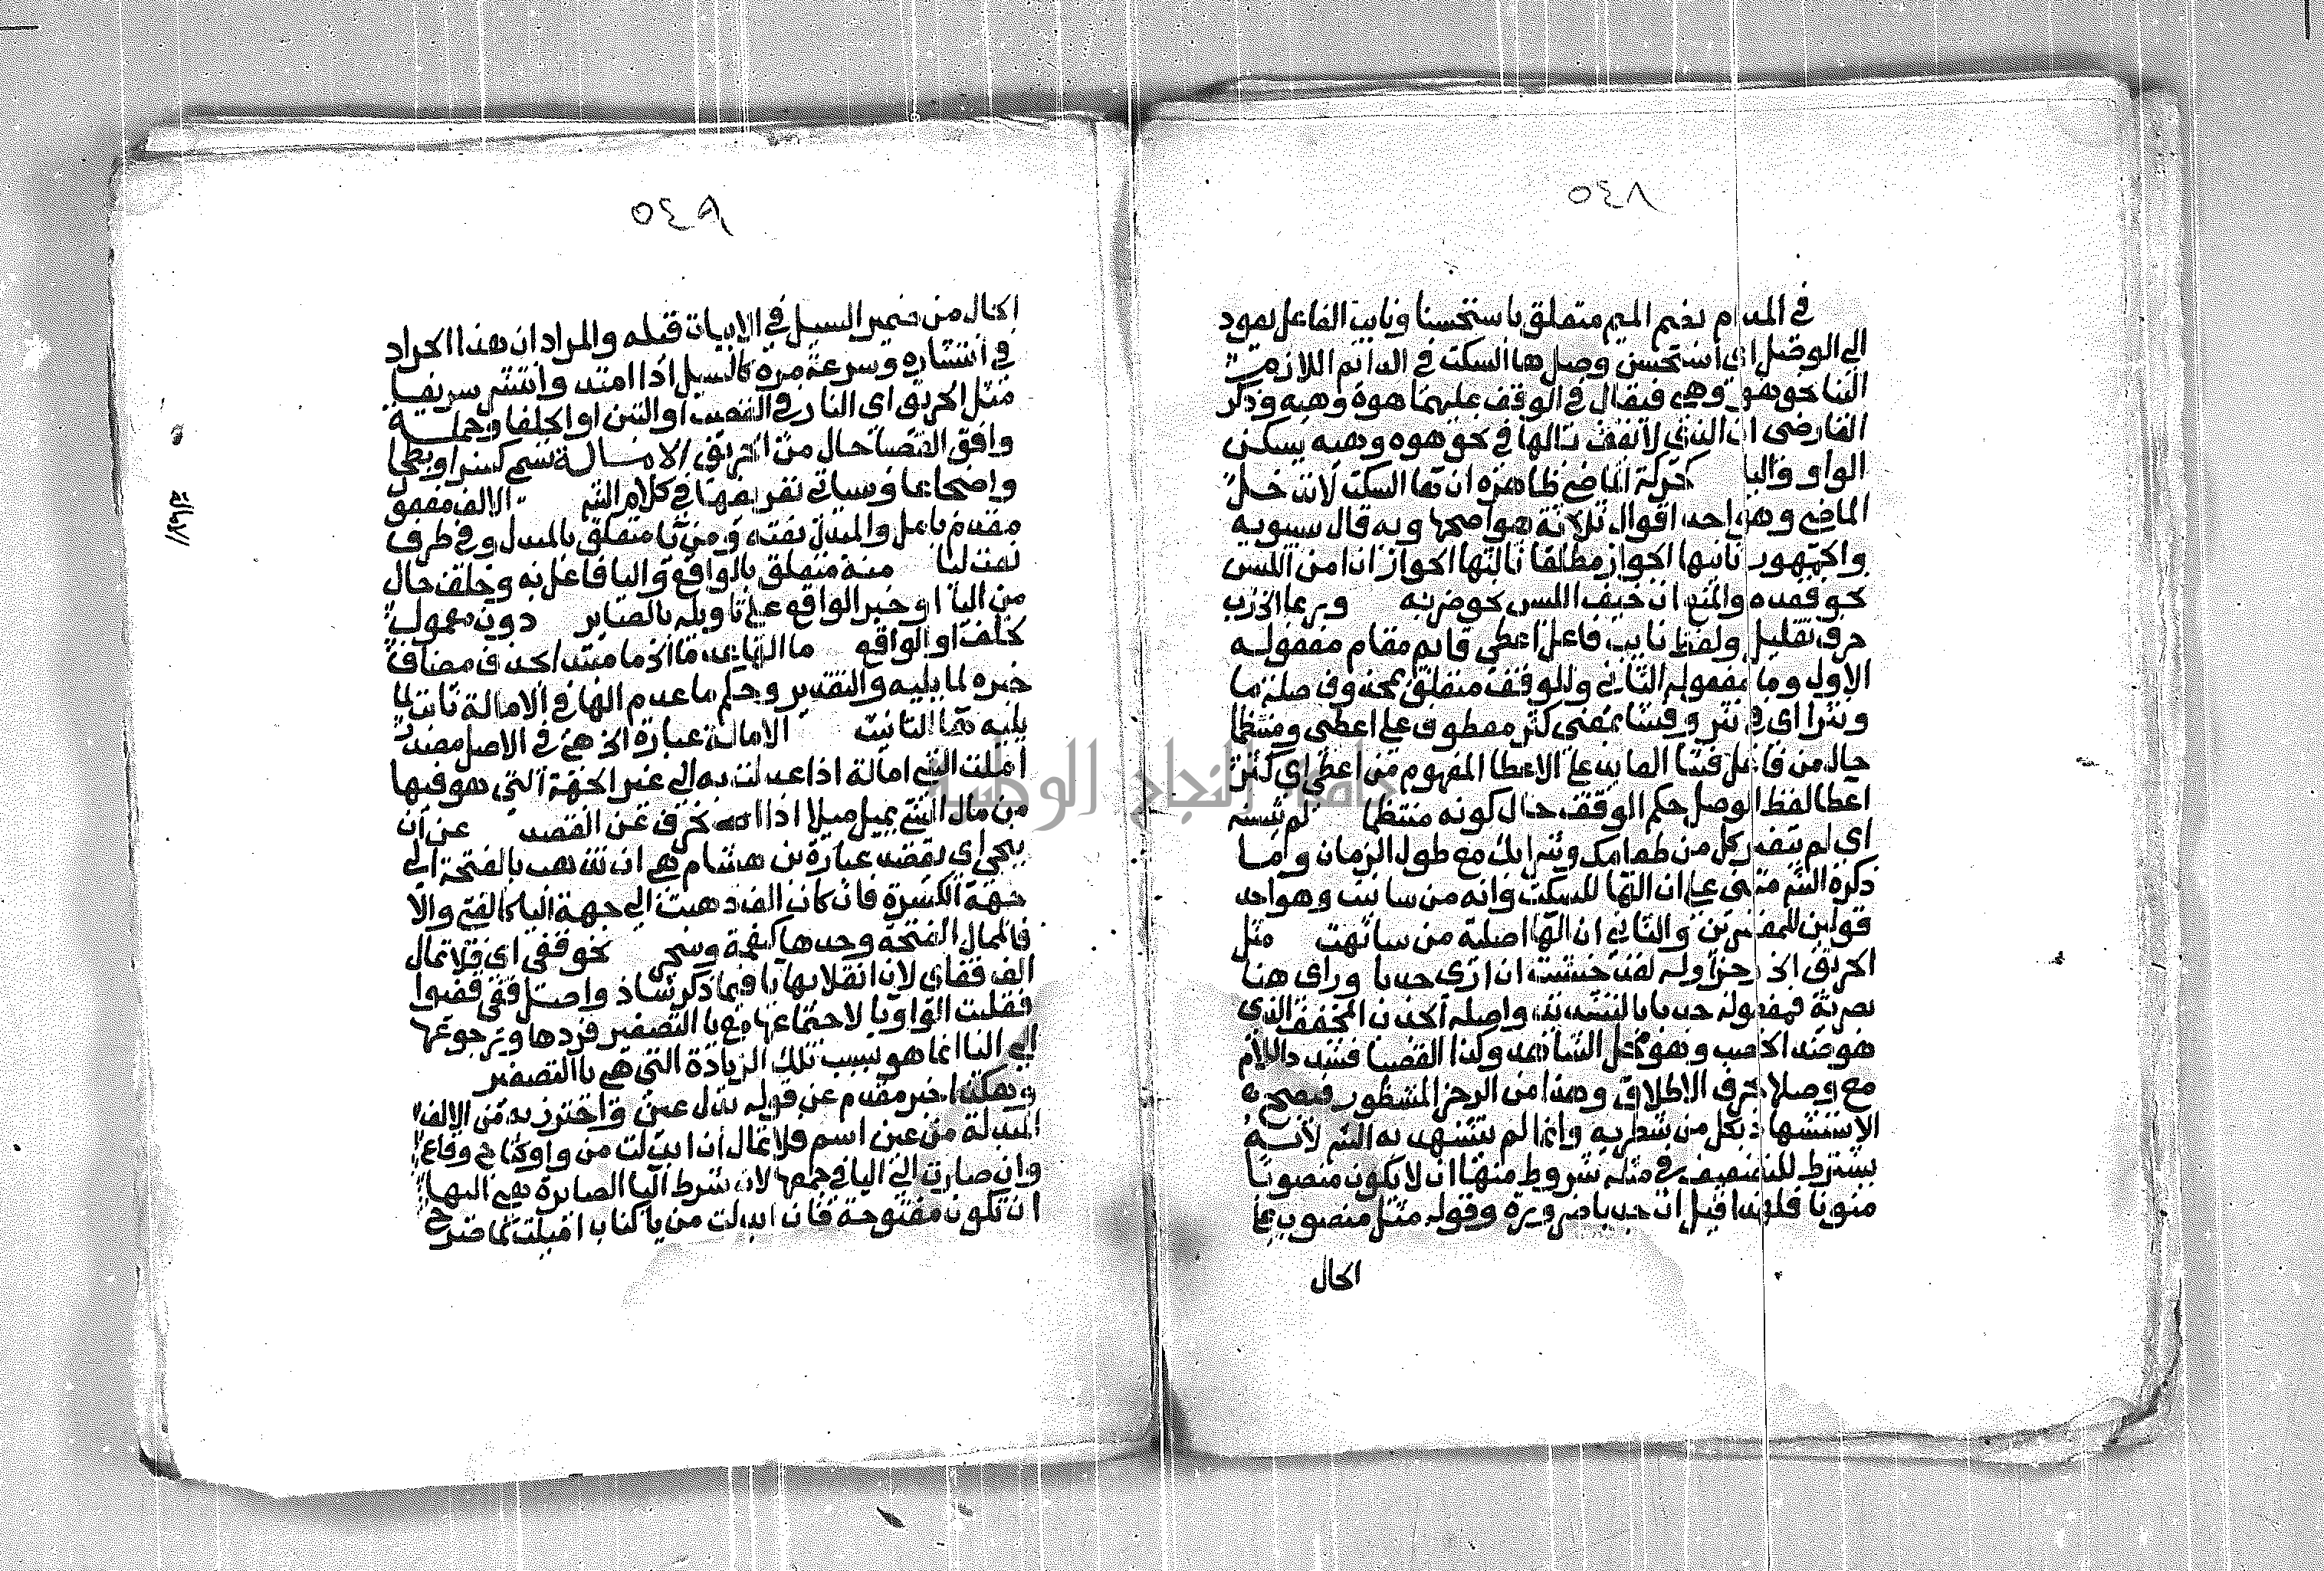 ٥٤٨
في المدام بضم الميم متعلق باستحسنا ونايب الفاعل يعود
الي الوصل اي استحسن وصل هاالسكت في الدائم اللازم
البنا نحو هو وهي فيقال في الوقف عليهما هوه وهيه وذكر
الفارضي ان الذي لا تقف بالها في نحو هوه وهيه يسكن
الواو واليا كحركة الماضي ظاهره ان ها السكت لا تدخل
الماضي وهو احد اقوال ثلاثة هو اصحها وبه قال سيبويه
والجمهور ثانيها الجواز مطلقا ثالثها الجواز ان امن اللبس
نحو قعده والمنع ان خيف اللبس نحو ضربه وربما الخ رب
حرف تقليل ولفظ نايب فاعل اعطي قايم مقام مفعوله
الاول وما مفعوله الثاني وللوقف متعلق بمحذوف صلة ما
ونثرا اي في نثر وفشا بمعني كثر معطوف علي اعطي ومنتظما
حال من فاعل فشا العايد علي الاعطا المفهوم من اعطي اي كثر
اعطا لفظ الوصل حكم الوقف حال كونه منتظما لم يتسنه
اي لم يتغير كل من طعامك وشرابك مع طول الزمان وما
ذكره الشم مبني علي ان الها للسكت وانه من سانيت وهو احد
قولين للمفسرين والثاني ان الها اصلية من سانهت مثل
الحريق الخ رجز اوله لقد خشيت ان اري جدبا وراي هنا
بصرية فمفعوله جدبا بالتشديد واصله الجدب المخفف الذي
هو ضد الخصب وهو محل الشاهد وكذا القصبا فشدد اللام
مع وصلها بحرف الاطلاق وهذا من الرجز المشطور فيصح
الاستشهاد بكل من شطريه وانما لم يتشهد به الشم لانه
يشترط للتضعيف في مثله شروط منها ان لا يكون منصوبا
منونا فلهذا قيل ان جدبا ضرورة وقوله مثل منصوب علي
الحال
٥٤٩
الحال من ضمير السيل في الابيات قبله والمراد ان هذا الجراد
في انتشاره وسرعة مره كالسيل اذا امتد وانتشر سريعا
مثل الحريق اي النار في القصب او التبن او الحلفا وجملة
وافق القصبا حال من الحريق الامالة تسمي كسرا وبطحا
واضجاعا وسياتي تعريفها في كلام الشم الالف مفعول
مقدم بامل والمبدل نعته ومن يا متعلق بالمبدل وفي طرف
نعت ليا منه متعلق بالواقع واليا فاعل به وخلف حال
من اليا او خبر الواقع علي تاويله بالصاير دون معمول
لخلف او الواقع ما الها عدما الخ ما مبتدا حذف مضاف
خبره لما يليه والتقدير وحكم ما عدم الها في الامالة ثابت لما
يليه ها التانيث الامالة عبارة الخ هي في الاصل مصدر
املت الشي امالة اذا عدلت به الي غير الجهة التي هو فيها
من مال الشي يميل ميلا اذا انحرف عن القصد عن ان
ينحي اي يقصد عبارة بن هشام هي ان تذهب بالفتحة الي
جهة الكسرة فان كان الف ذهبت الي جهة اليا كالفتي والا
فالممال الفتحة وحدها كنعمة وسحر نحو قفي اي فلا تمال
الف قفا اي لان انقلابها يا فيما ذكر شاذ واصل قفي قفيوا
فقلبت الواو يا لاجتماعها مع يا التصغير فردها ورجوعها
الي اليا انما هو بسبب تلك الزيادة التي هي يا التصغير
وهكذا خبر مقدم عن قوله بدل عين واحترز به من الالف
المبدلة من عين اسم فلا تمال ان ابدلت من واو كتاج وقاع
وان صارت الي اليا في جمعها لان شرط اليا الصايرة هي اليها
ان تكون مفتوحة فان ابدلت من يا كناب اميلت كما صرح
الامالة
جامعة النجاح الوطنية